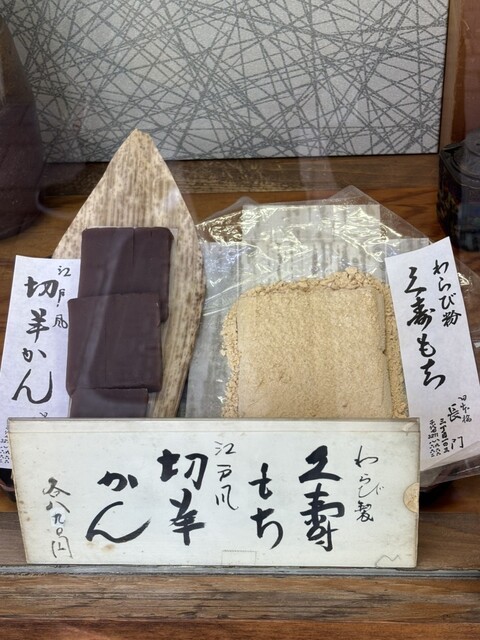 江戸風
切羊かん
わらび粉
久寿もち
日本橋
長門
わらび製
久寿
もち
江戸風
切羊
かん
各八九〇円